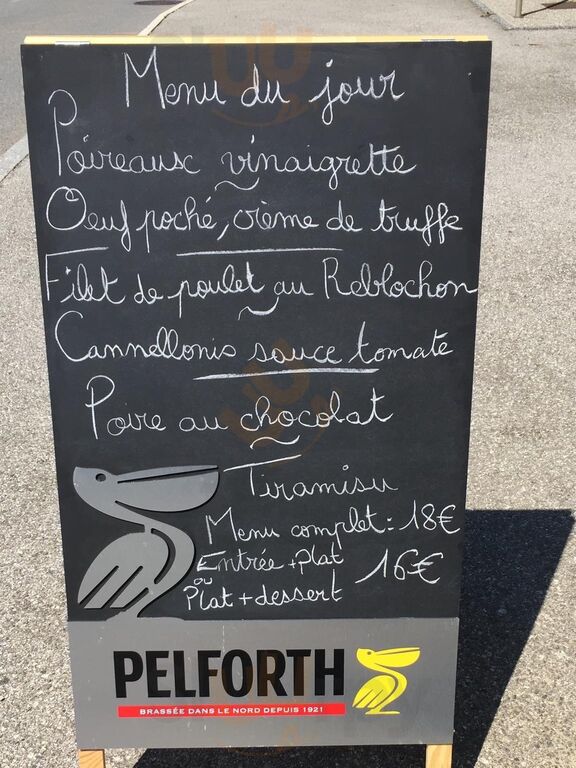 Menu du jour
Poireaux vinaigrette
Oeuf poché, crème de truffe
Filet de poulet au Reblochon
Cannellonis sauce tomate
Poire au chocolat
Tiramisu
Menu complet = 18€
Entrée + plat
ou 16€
Plat + dessert
PELFORTH
BRASSÉE DANS LE NORD DEPUIS 1921